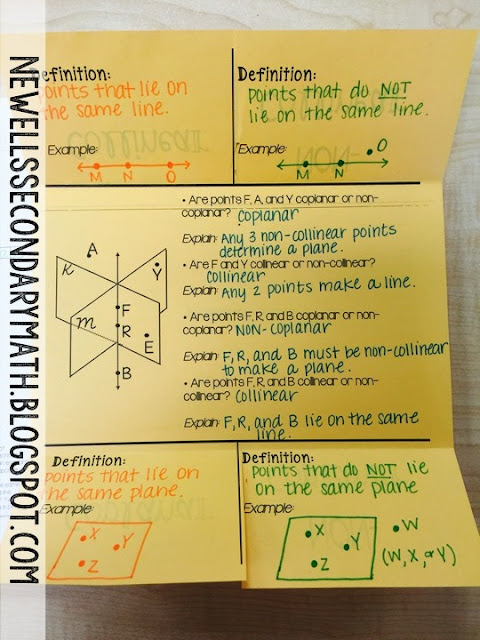 NEWELLSSECONDARYMATH.BLOGSPOT.COM
Definition:
points that lie on
the same line.
Example:
M N O
Definition:
points that do NOT
lie on the same line.
Example:
M N O
• Are points F, A, and Y coplanar or non-
coplanar? coplanar
Explain: Any 3 non-collinear points
determine a plane.
• Are F and Y collinear or non-collinear?
collinear
Explain: Any 2 points make a line.
• Are points F, R, and B coplanar or non-
coplanar? NON-coplanar
Explain: F, R, and B must be non-collinear
to make a plane.
• Are points F, R, and B collinear or non-
collinear? collinear
Explain: F, R, and B lie on the same
line.
A
K
Y
F
m
R
E
B
Definition:
points that lie on
the same plane.
Example:
X
Y
Z
Definition:
points that do NOT lie
on the same plane
Example:
X
W
Y
(W, X, or Y)
Z